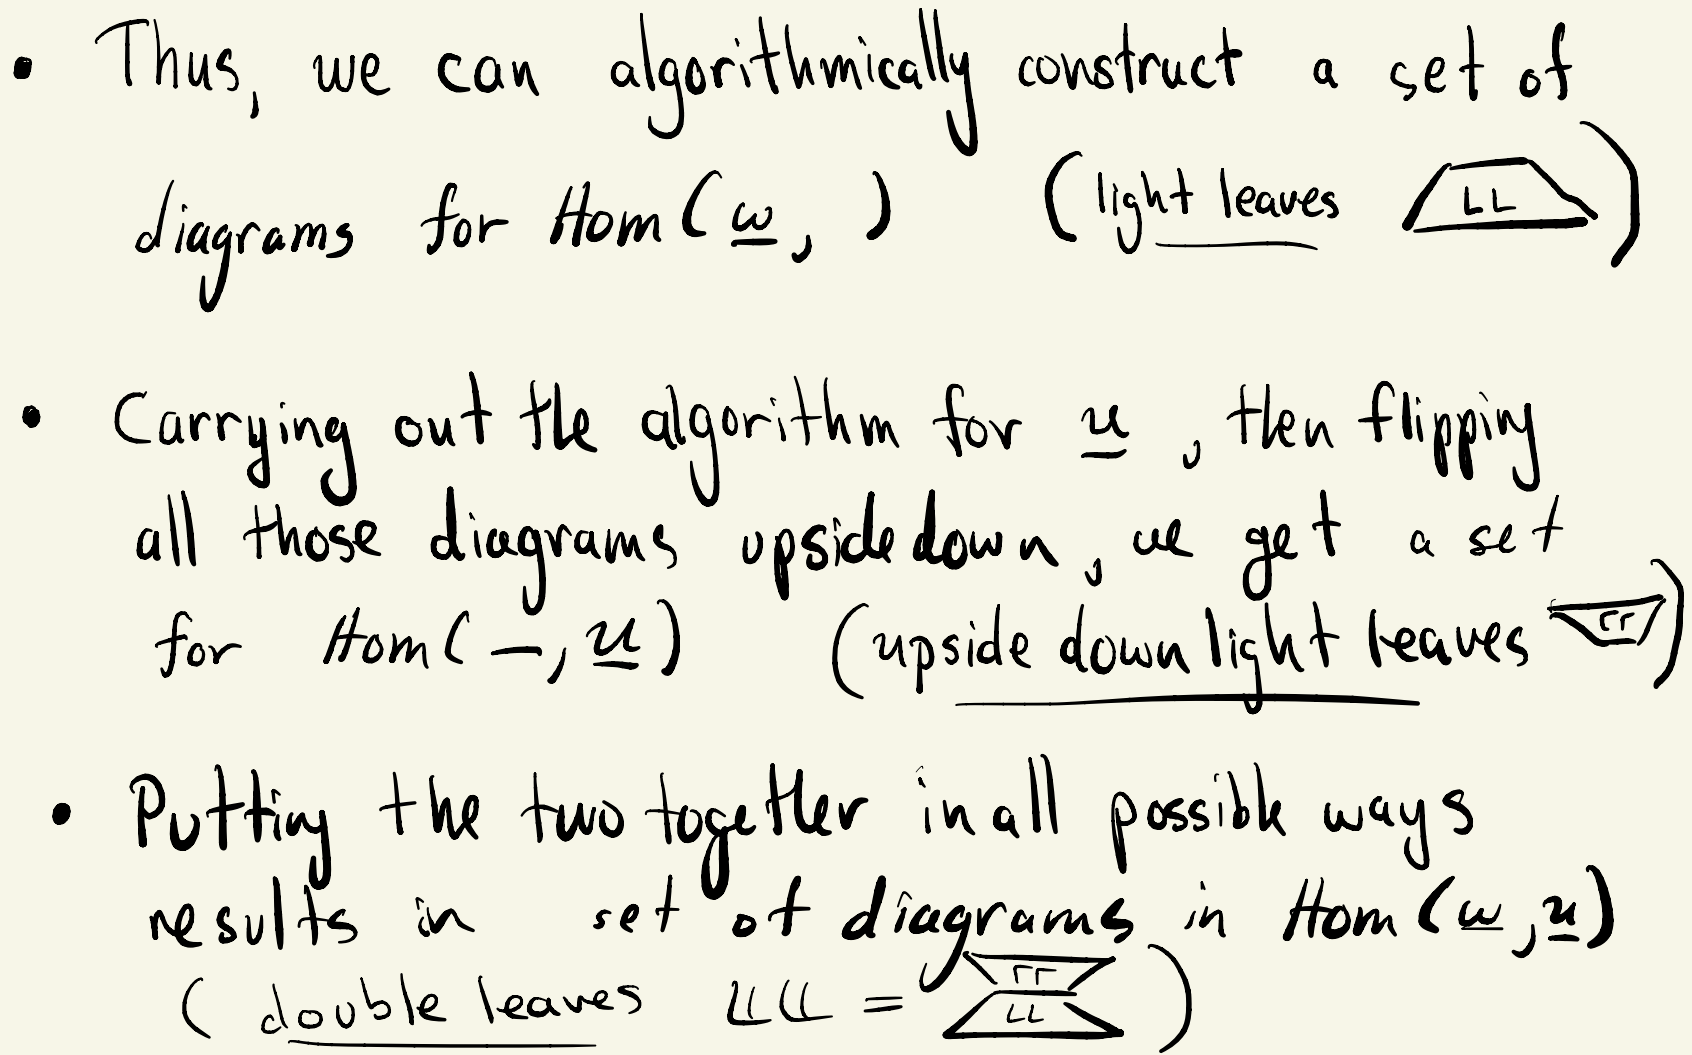 • Thus, we can algorithmically construct a set of
diagrams for Hom(w̲, ) (light leaves LL)
• Carrying out the algorithm for u̲, then flipping
all those diagrams upside down, we get a set
for Hom(—, u̲) (upside down light leaves ΓΓ)
• Putting the two together in all possible ways
results in set of diagrams in Hom(w̲, u̲)
(double leaves 𝕃𝕃 = ΓΓ LL)